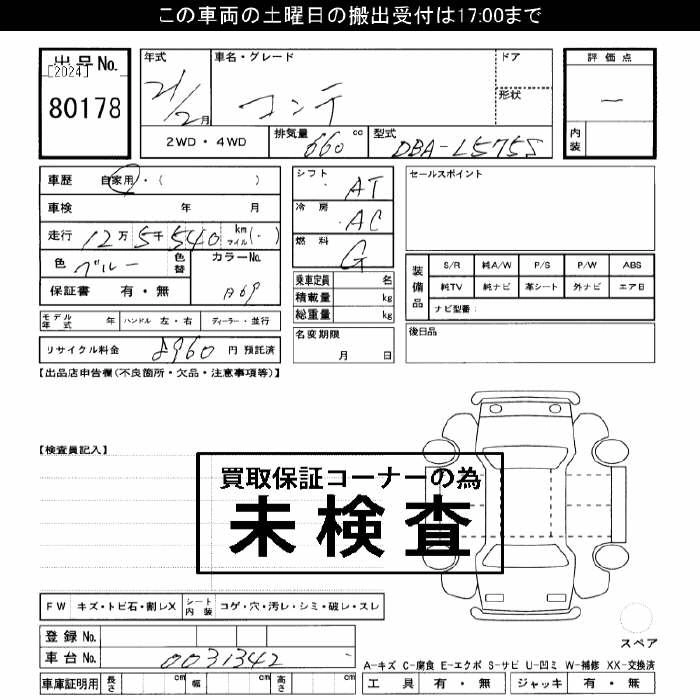 この車両の土曜日の搬出受付は17:00まで
出品No.
[2024]
80178
年式
21/2月
車名・グレード
コンテ
ドア
形状
評価点
ー
内装
2WD・4WD
排気量 660 cc
型式 DBA-L575S
車歴 自家用・( )
車検 年 月
走行 12万5千540 km マイル(・)
色 ブルー 色替
カラーNo. B69
保証書 有・無
シフト AT
冷房 AC
燃料 G
乗車定員 名
積載量 kg
総重量 kg
セールスポイント
装備品
S/R 純A/W P/S P/W ABS
純TV 純ナビ 革シート 外ナビ エアB
ナビ型番:
モデル年式 年 ハンドル 左・右 ディーラー・並行
名変期限
月 日
後日品
リサイクル料金 8960 円 預託済
【出品店申告欄(不良箇所・欠品・注意事項等)】
【検査員記入】
買取保証コーナーの為
未検査
FW キズ・トビ石・割レX シート内装 コゲ・穴・汚レ・シミ・破レ・スレ
登録No.
車台No. 0031342
スペア
A-キズ C-腐食 E-エクボ S-サビ U-凹ミ W-補修 XX-交換済
車庫証明用 長さ cm 幅 cm 高さ cm
工具 有・無 ジャッキ 有・無